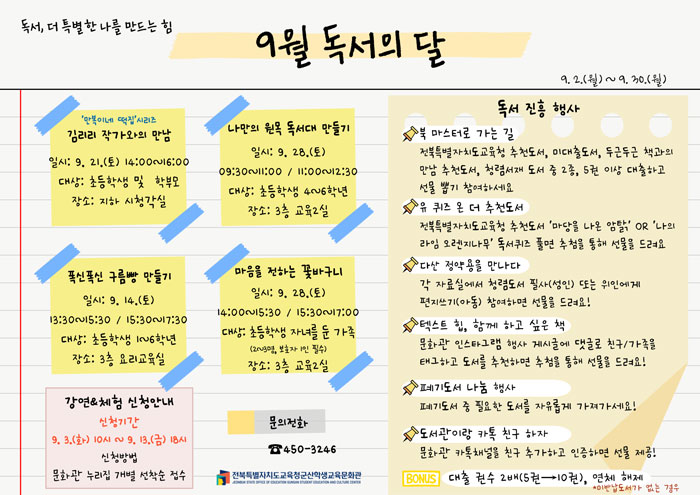 독서, 더 특별한 나를 만드는 힘
9월 독서의 달
9. 2.(월) ~ 9. 30.(월)
'만복이네 떡집'시리즈
김리리 작가와의 만남
일시: 9. 21.(토) 14:00~16:00
대상: 초등학생 및 학부모
장소: 지하 시청각실
나만의 원목 독서대 만들기
일시: 9. 28.(토)
09:30~11:00 / 11:00~12:30
대상: 초등학생 4~6학년
장소: 3층 교육2실
폭신폭신 구름빵 만들기
일시: 9. 14.(토)
13:30~15:30 / 15:30~17:30
대상: 초등학생 1~6학년
장소: 3층 요리교육실
마음을 전하는 꽃바구니
일시: 9. 28.(토)
14:00~15:30 / 15:30~17:00
대상: 초등학생 자녀를 둔 가족
(2~3명, 보호자 1인 필수)
장소: 3층 교육2실
강연&체험 신청안내
신청기간
9. 3.(화) 10시 ~ 9. 13.(금) 18시
신청방법
문화관 누리집 개별 선착순 접수
문의전화
☎450-3246
전북특별자치도교육청군산학생교육문화관
JEONBUK STATE OFFICE OF EDUCATION GUNSAN STUDENT EDUCATION AND CULTURE CENTER
독서 진흥 행사
북 마스터로 가는 길
전북특별자치도교육청 추천도서, 미대출도서, 두근두근 책과의
만남 추천도서, 청렴서재 도서 중 2종, 5권 이상 대출하고
선물 뽑기 참여하세요
유 퀴즈 온 더 추천도서
전북특별자치도교육청 추천도서 '마당을 나온 암탉' OR '나의
라임 오렌지나무' 독서퀴즈 풀면 추첨을 통해 선물을 드려요
다산 정약용을 만나다
각 자료실에서 청렴도서 필사(성인) 또는 위인에게
편지쓰기(아동) 참여하면 선물을 드려요!
텍스트 힙, 함께 하고 싶은 책
문화관 인스타그램 행사 게시글에 댓글로 친구/가족을
태그하고 도서를 추천하면 추첨을 통해 선물을 드려요!
폐기도서 나눔 행사
폐기도서 중 필요한 도서를 자유롭게 가져가세요!
도서관이랑 카톡 친구 하자
문화관 카톡채널을 친구 추가하고 인증하면 선물 제공!
BONUS 대출 권수 2배(5권→10권), 연체 해제
*미반납도서가 없는 경우